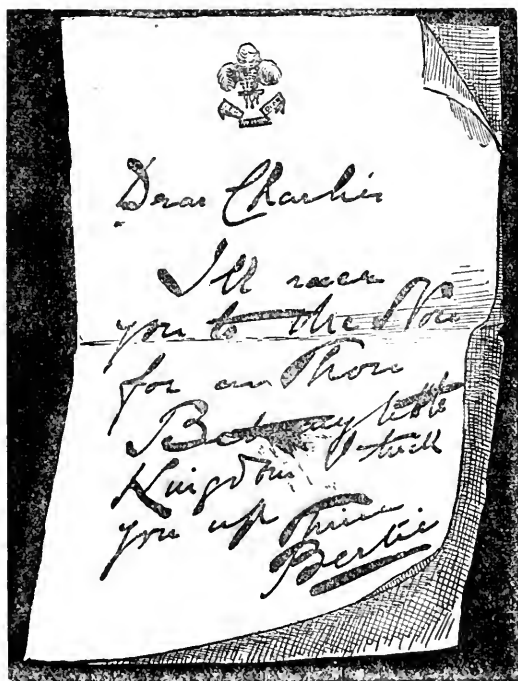 Dear Charlie
I'll race
you to the Nore
for an Thou
Bet my
Kingdom
you up Thine
Bertie